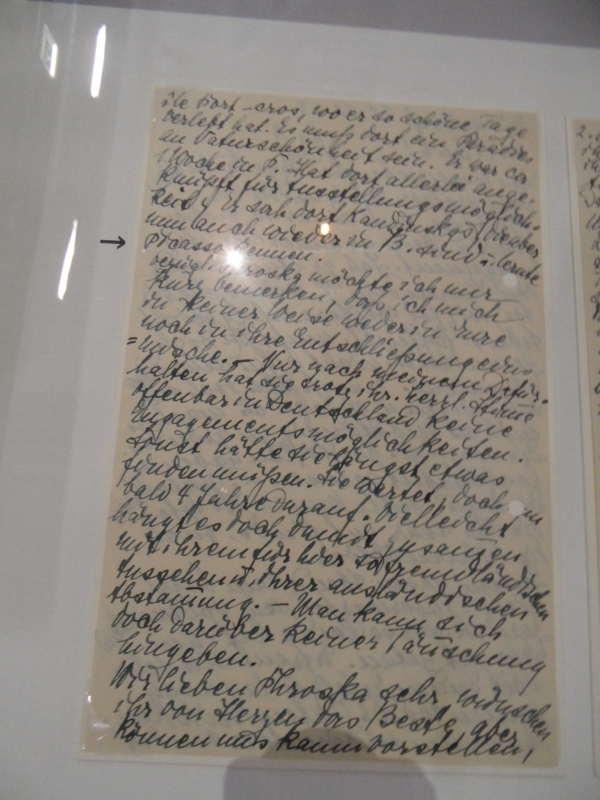 île Port-cros, wo er so schöne Tage
verlebt hat. Es muß dort ein Paradies
an Naturschönheit sein. Er war ca
1 Woche in P. Hat dort allerlei ange-
knüpft für Ausstellungsmöglich-
keit u. er sah dort Kandinskys, die aber
nun auch wieder in B. sind u. lernte
Picasso kennen.
bezügl. Phroska möchte ich nur
kurz bemerken, daß ich mich
in keiner Weise weder in Eure
noch in ihre Entschließung
mische. – Nur nach meinem
halten hat sie trotz ihr. herrl. Stimme
offenbar in Deutschland keine
Engagementsmöglichkeiten.
Sonst hätte sie längst etwas
finden müßen. Sie wartet doch nun
bald 4 Jahre darauf. Vielleicht
hängt es doch damit zusammen
mit ihrem für hier so fremdländischen
Aussehen u. ihrer ausländischen
Abstammung. – Man kann sich
doch darüber keiner Täuschung
hingeben.
Wir lieben Phroska sehr, wünschen
ihr von Herzen das Beste, aber
können uns kaum vorstellen,